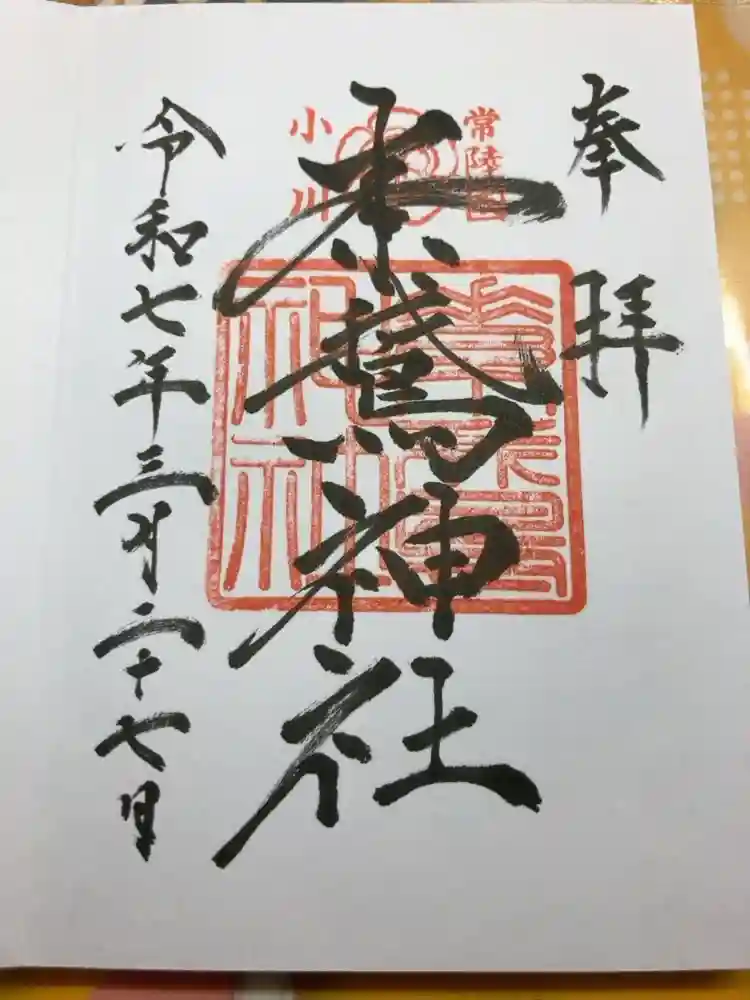 奉拝
常陸国
小川
素鵞神社
素鵞神社
令和七年三月二十七日